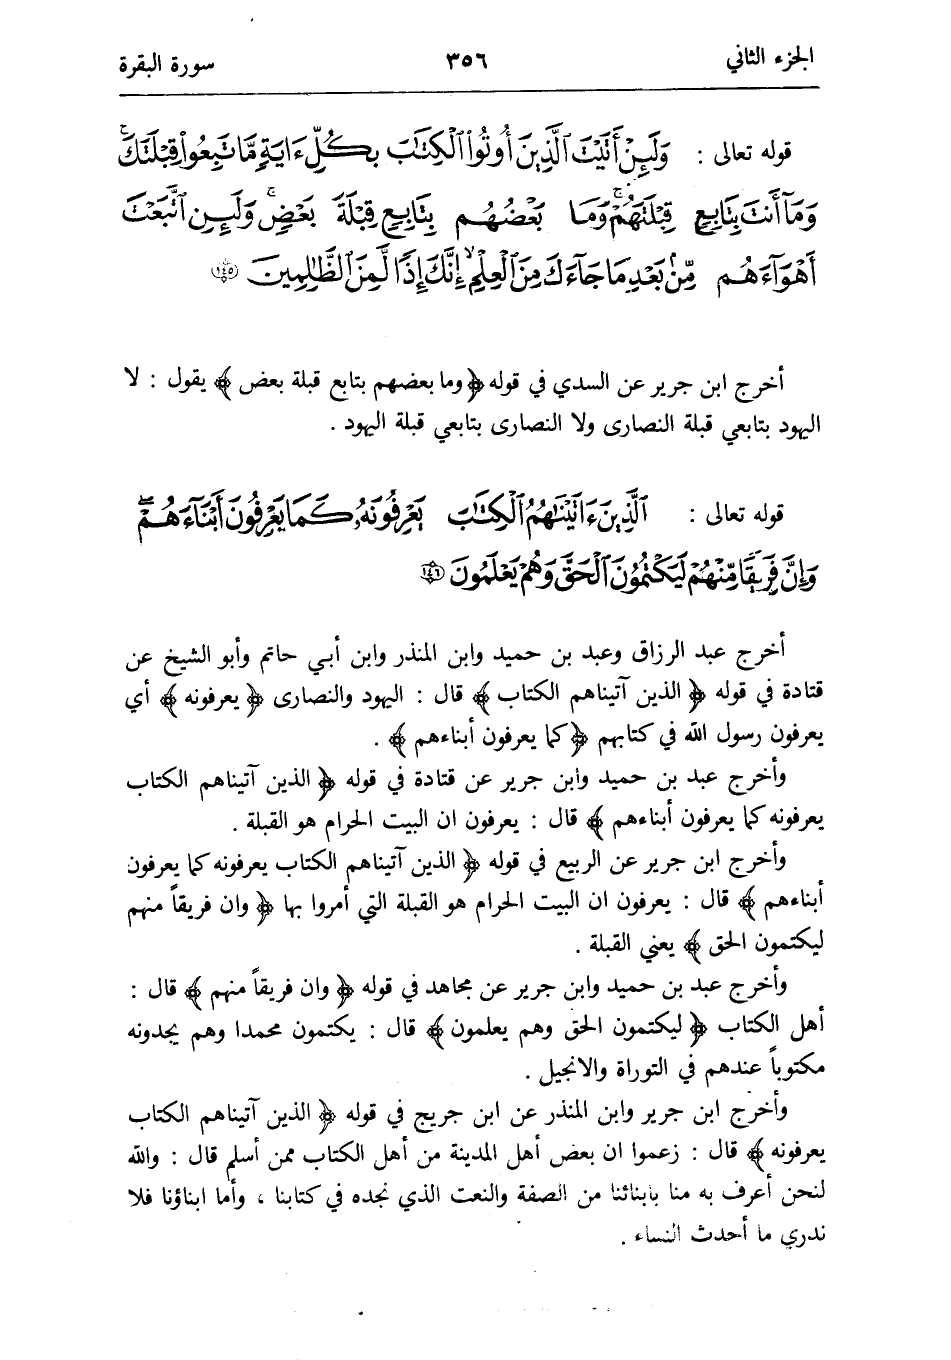 الجزء الثاني ٣٥٦ سورة البقرة
قوله تعالى : وَلَئِنْ أَتَيْتَ ٱلَّذِينَ أُوتُوا۟ ٱلْكِتَٰبَ بِكُلِّ ءَايَةٍ مَّا تَبِعُوا۟ قِبْلَتَكَ ۚ
وَمَآ أَنتَ بِتَابِعٍ قِبْلَتَهُمْ ۚ وَمَا بَعْضُهُم بِتَابِعٍ قِبْلَةَ بَعْضٍ ۚ وَلَئِنِ ٱتَّبَعْتَ
أَهْوَآءَهُم مِّنۢ بَعْدِ مَا جَآءَكَ مِنَ ٱلْعِلْمِ ۙ إِنَّكَ إِذًا لَّمِنَ ٱلظَّٰلِمِينَ ١٤٥
أخرج ابن جرير عن السدي في قوله ﴿ وما بعضهم بتابع قبلة بعض ﴾ يقول : لا
اليهود بتابعي قبلة النصارى ولا النصارى بتابعي قبلة اليهود .
قوله تعالى : ٱلَّذِينَ ءَاتَيْنَٰهُمُ ٱلْكِتَٰبَ يَعْرِفُونَهُۥ كَمَا يَعْرِفُونَ أَبْنَآءَهُمْ ۖ
وَإِنَّ فَرِيقًا مِّنْهُمْ لَيَكْتُمُونَ ٱلْحَقَّ وَهُمْ يَعْلَمُونَ ١٤٦
أخرج عبد الرزاق وعبد بن حميد وابن المنذر وابن أبي حاتم وأبو الشيخ عن
قتادة في قوله ﴿ الذين آتيناهم الكتاب ﴾ قال : اليهود والنصارى ﴿ يعرفونه ﴾ أي
يعرفون رسول الله في كتابهم ﴿ كما يعرفون أبناءهم ﴾ .
وأخرج عبد بن حميد وابن جرير عن قتادة في قوله ﴿ الذين آتيناهم الكتاب
يعرفونه كما يعرفون أبناءهم ﴾ قال : يعرفون ان البيت الحرام هو القبلة .
وأخرج ابن جرير عن الربيع في قوله ﴿ الذين آتيناهم الكتاب يعرفونه كما يعرفون
أبناءهم ﴾ قال : يعرفون ان البيت الحرام هو القبلة التي أمروا بها ﴿ وان فريقاً منهم
ليكتمون الحق ﴾ يعني القبلة .
وأخرج عبد بن حميد وابن جرير عن مجاهد في قوله ﴿ وان فريقاً منهم ﴾ قال :
أهل الكتاب ﴿ ليكتمون الحق وهم يعلمون ﴾ قال : يكتمون محمدا وهم يجدونه
مكتوباً عندهم في التوراة والانجيل .
وأخرج ابن جرير وابن المنذر عن ابن جريج في قوله ﴿ الذين آتيناهم الكتاب
يعرفونه ﴾ قال : زعموا ان بعض أهل المدينة من أهل الكتاب ممن أسلم قال : والله
لنحن أعرف به منا بابنائنا من الصفة والنعت الذي نجده في كتابنا ، وأما ابناؤنا فلا
ندري ما أحدث النساء .